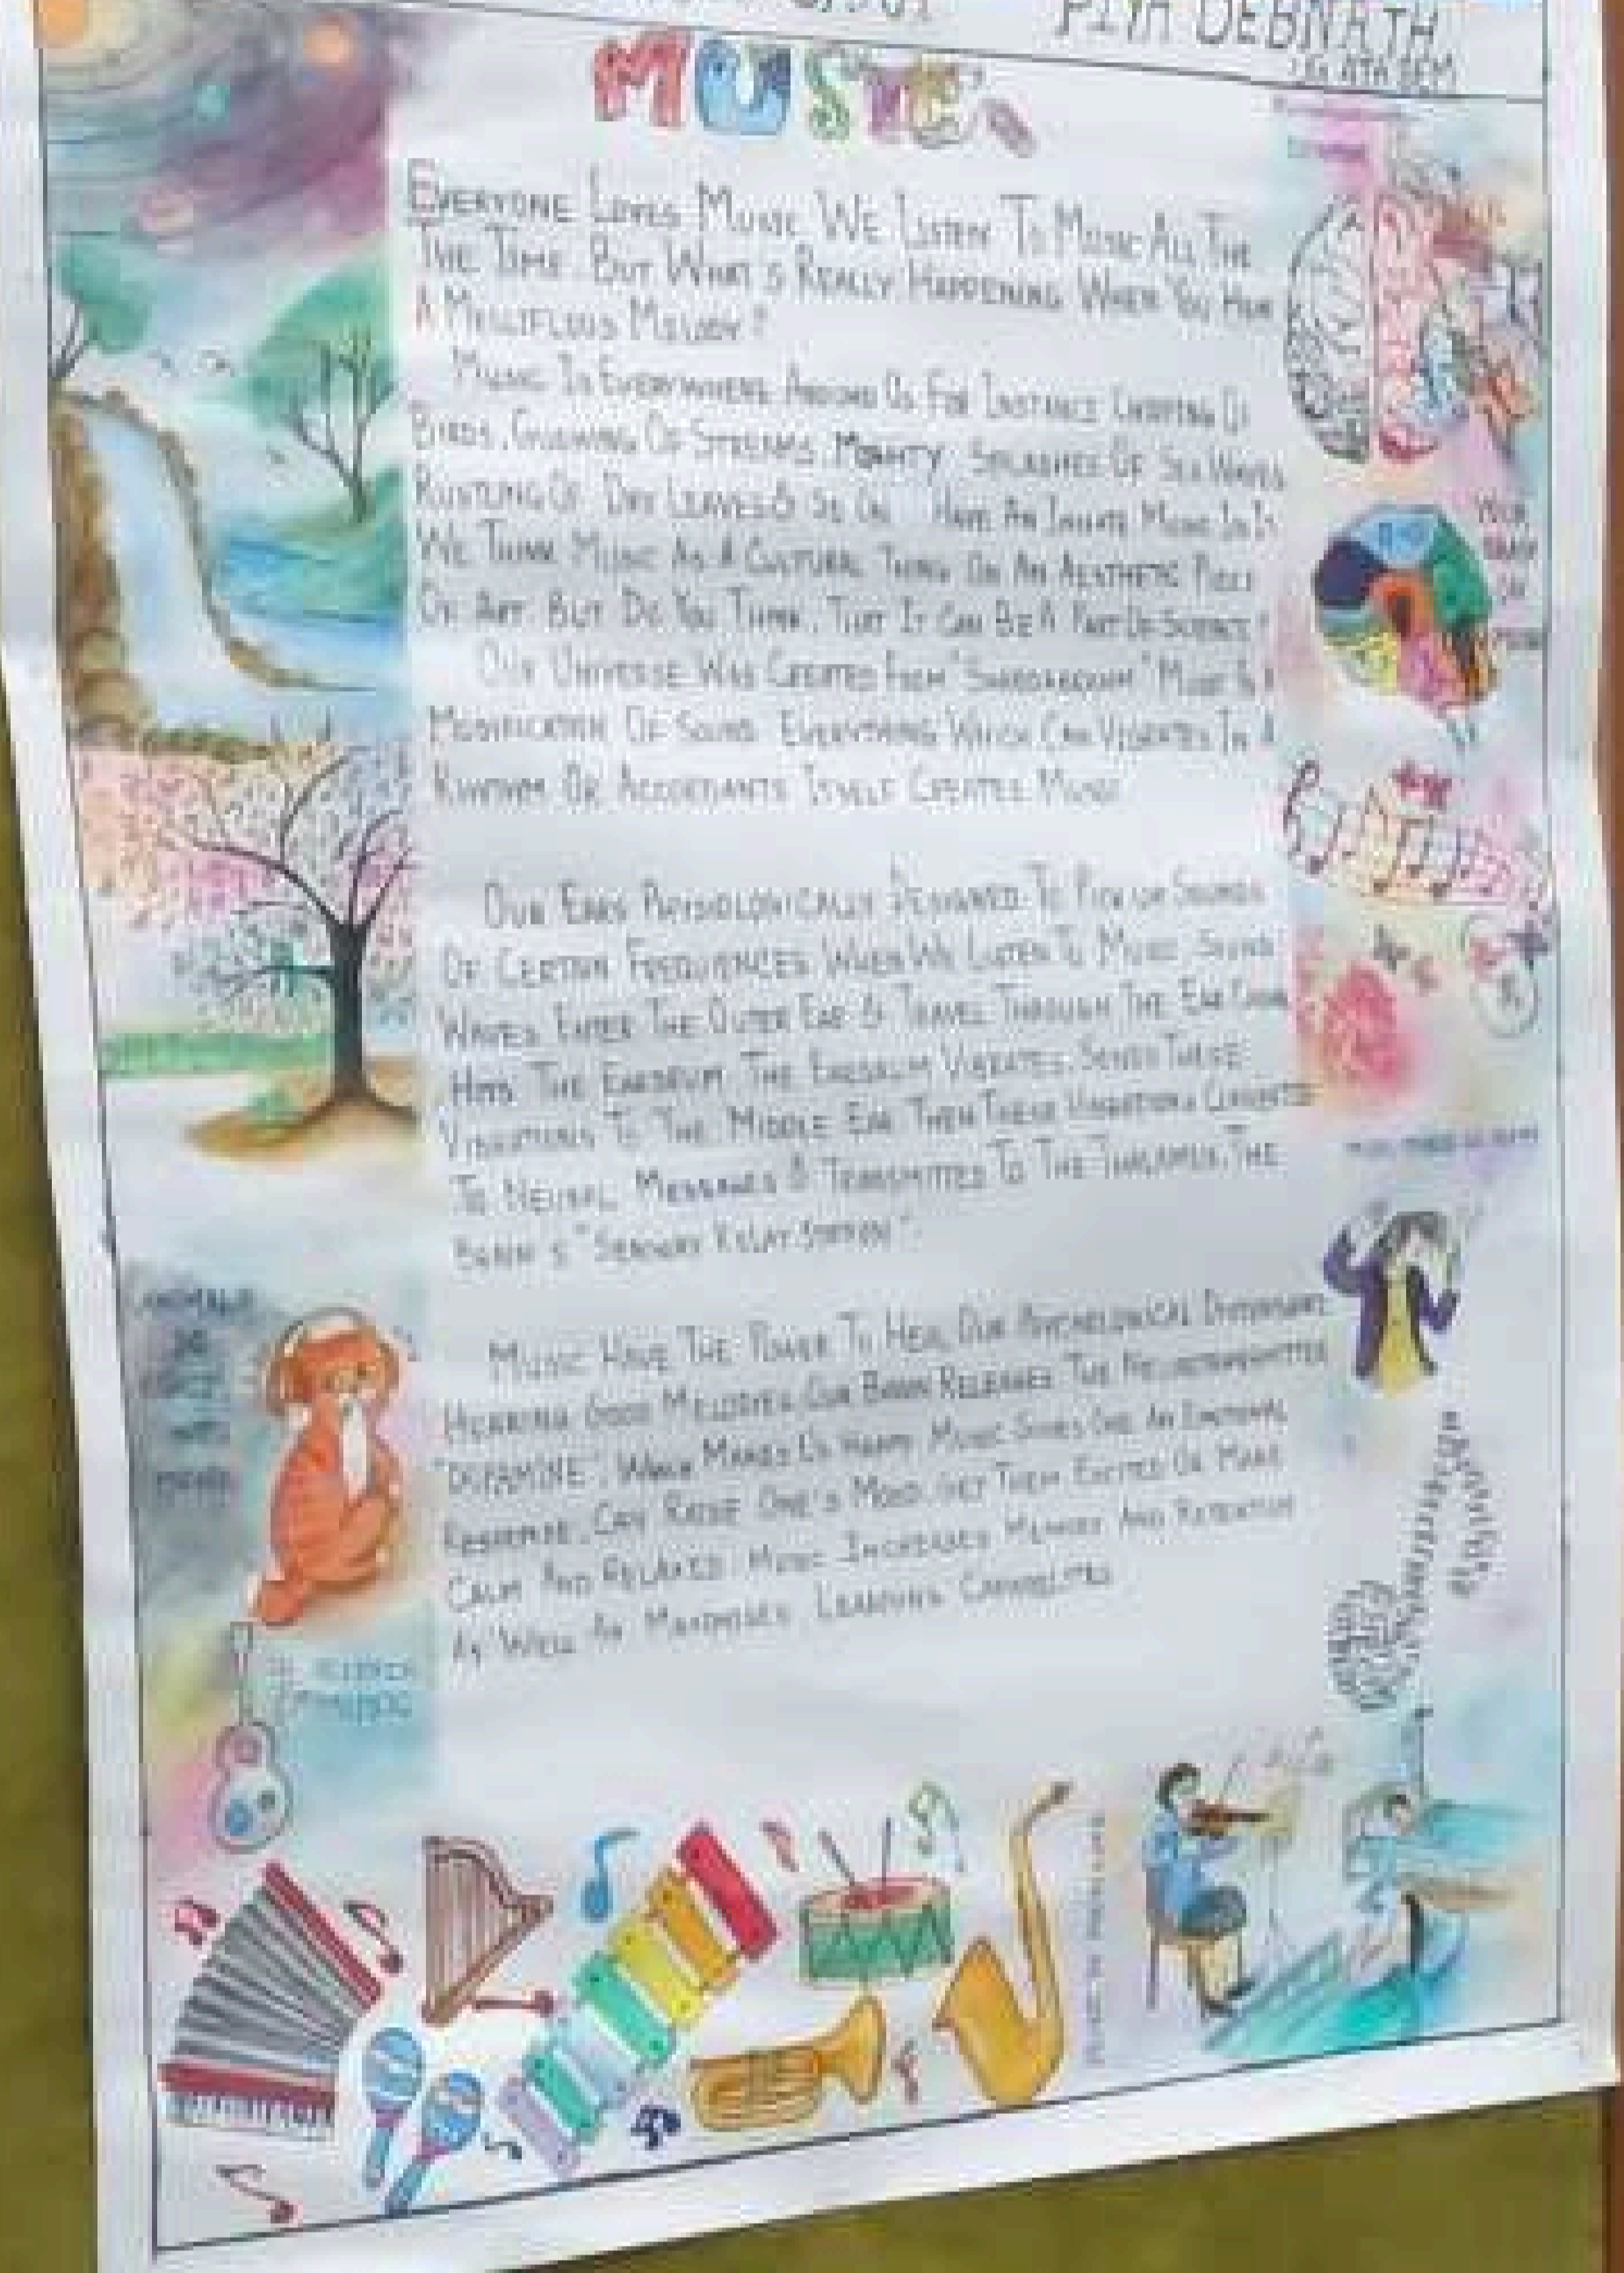 PIYA DEBNATH
4TH SEM
MUSIC
EVERYONE LOVES MUSIC. WE LISTEN TO MUSIC ALL THE
THE TIME. BUT WHAT'S REALLY HAPPENING WHEN YOU HEAR
A MELLIFLOUS MELODY?
MUSIC IS EVERYWHERE AROUND US FOR INSTANCE CHIRPING OF
BIRDS, OF STREAMS, MIGHTY SPLASHES OF SEA WAVES
RUSTLING OF DRY LEAVES & SO ON HAVE AN INNATE MUSIC IN IT
WE THINK MUSIC AS A CULTURAL THING OR AN AESTHETIC PIECE
OF ART. BUT DO YOU THINK, THAT IT CAN BE A PART OF SCIENCE?
OUR UNIVERSE WAS CREATED FROM MUSIC IS A
MODIFICATION OF SOUND. EVERYTHING WHICH CAN VIBRATES IN A
RHYTHM OR ITSELF CREATES MUSIC
OUR EARS PHYSIOLOGICALLY DESIGNED TO PICK UP SOUNDS
OF CERTAIN FREQUENCES WHEN WE LISTEN TO MUSIC SOUND
WAVES ENTER THE OUTER EAR & TRAVEL THROUGH THE EAR CANAL
HITS THE EARDRUM. THE EARDRUM VIBRATES, SENDS THESE
VIBRATIONS TO THE MIDDLE EAR THEN THESE VIBRATIONS CONVERTED
TO NEURAL MESSAGES & TRANSMITTED TO THE THALAMUS, THE
BRAIN'S "SENSORY RELAY STATION".
MUSIC HAVE THE POWER TO HEAL OUR
HEARING GOOD MELODIES, OUR BRAIN RELEASES THE NEUROTRANSMITTER
"DOPAMINE", WHICH MAKES US HAPPY. MUSIC GIVES ONE AN EMOTIONAL
RESPONSE, CAN RAISE ONE'S MOOD, GET THEM EXCITED OR MAKE
CALM AND RELAXED. MUSIC INCREASES MEMORY AND RETENTION
AS WELL AS MAXIMISES LEARNING CAPABILITIES
YOUR
BRAIN
ON
MUSIC
ANIMALS
MUSIC